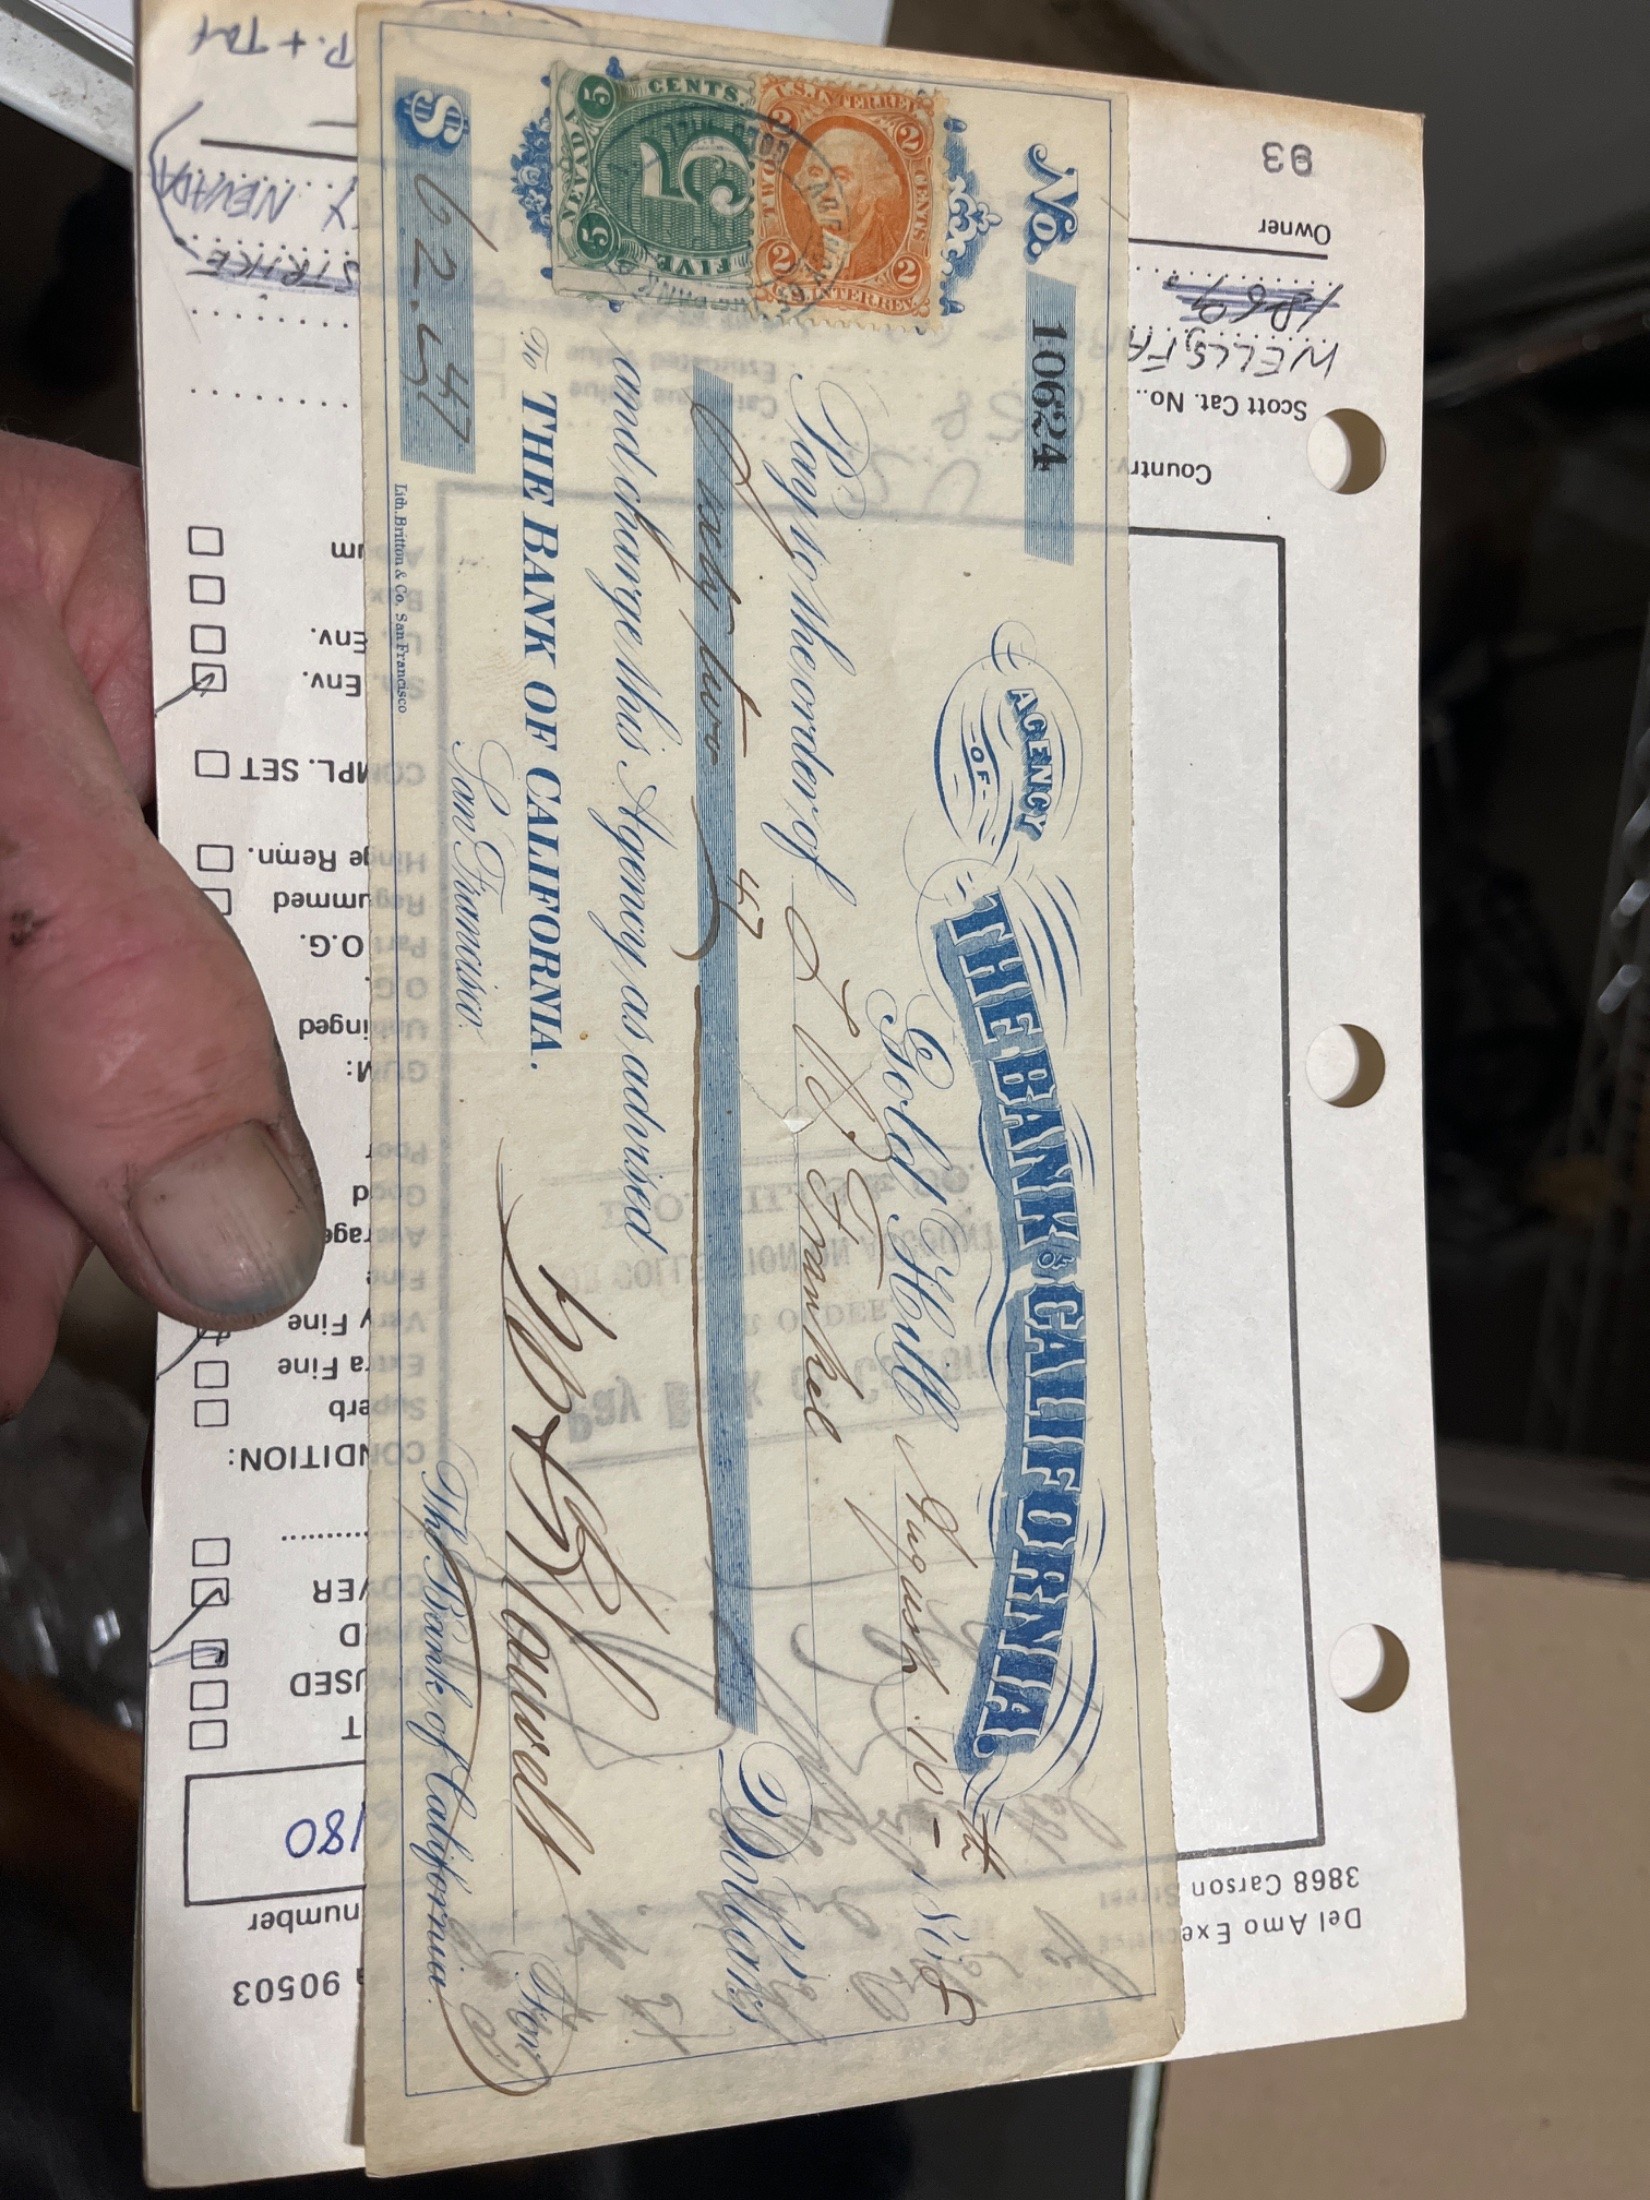 No. 10624
AGENCY
-OF-
THE BANK OF CALIFORNIA.
Gold Hill August 10th 1868
Pay to the order of
Frankel
Sixty two 47 Dollars
and charge this Agency as advised
To THE BANK OF CALIFORNIA.
San Francisco.
Agent
The Bank of California.
$ 62.47
Lith. Britton & Co. San Francisco
U.S. INTER. REV.
2 2
TWO CENTS
2 2
U.S. INTER. REV.
CENTS.
5 5
NEVADA
5
FIVE
Pay Bank of California
OR ORDER,
FOR COLLECTION ON ACCOUNT
Del Amo Exe
3868 Carson Street
90503
number
/80
USED
COVER
CONDITION:
Superb
Extra Fine
Very Fine
Fine
Average
Good
Poor
GUM:
Unhinged
O.G.
Part O.G.
Regummed
Hinge Remn.
COMPL. SET
Sm. Env.
L. Env.
Box
Album
Country
U.S.
Scott Cat. No.
WELLS, FA
1869
Catalogue Value
Estimated Value
Owner
93
NEVADA
STRIKE
P. +